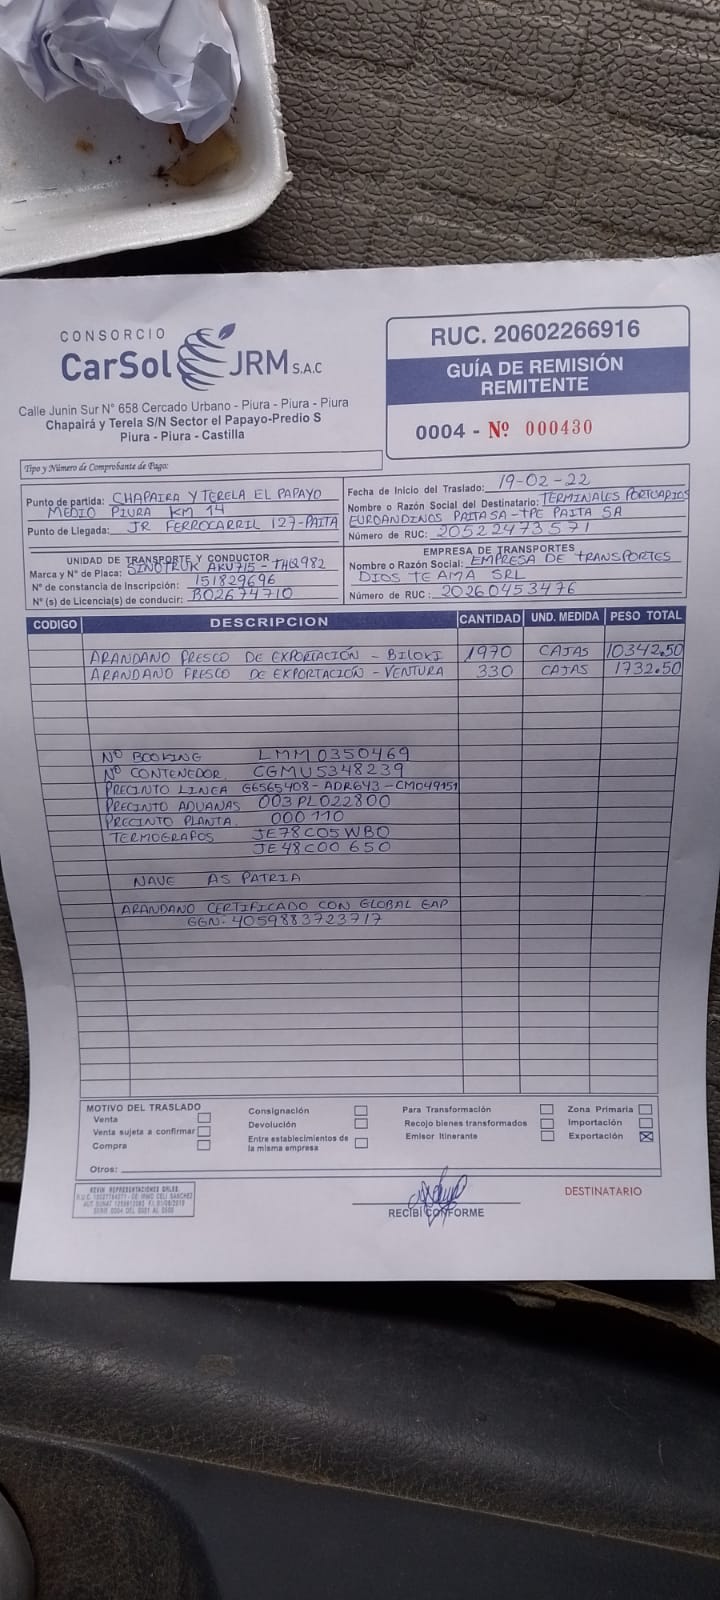 CONSORCIO
CarSol JRM S.A.C
Calle Junin Sur N° 658 Cercado Urbano - Piura - Piura - Piura
Chapairá y Terela S/N Sector el Papayo-Predio S
Piura - Piura - Castilla
RUC. 20602266916
GUÍA DE REMISIÓN
REMITENTE
0004 - Nº 000430
Tipo y Número de Comprobante de Pago:
Punto de partida: CHAPAIRA Y TERELA EL PAPAYO
MEDIO PIURA KM 14
Punto de Llegada: JR FERROCARRIL 127-PAITA
Fecha de Inicio del Traslado: 19-02-22
Nombre o Razón Social del Destinatario: TERMINALES PORTUARIOS
EUROANDINOS PAITA SA - TPE PAITA SA
Número de RUC: 20522473571
UNIDAD DE TRANSPORTE Y CONDUCTOR
Marca y N° de Placa: SINOTRUK AKU715 - THQ982
N° de constancia de Inscripción: 151829696
N° (s) de Licencia(s) de conducir: B02674710
EMPRESA DE TRANSPORTES
Nombre o Razón Social: EMPRESA DE TRANSPORTES
DIOS TE AMA SRL
Número de RUC: 20260453476
CODIGO DESCRIPCION CANTIDAD UND. MEDIDA PESO TOTAL
ARANDANO FRESCO DE EXPORTACIÓN - BILOXI 1970 CAJAS 10342.50
ARANDANO FRESCO DE EXPORTACIÓN - VENTURA 330 CAJAS 1732.50
Nº BOOKING LMM0350469
Nº CONTENEDOR CGMU5348239
PRECINTO LINEA G6565408 - ADR643 - CM049151
PRECINTO ADUANAS 003PL022800
PRECINTO PLANTA 000110
TERMOGRAFOS JE78C05WB0
JE48C00650
NAVE AS PATRIA
ARANDANO CERTIFICADO CON GLOBAL GAP
GGN- 4059883723717
MOTIVO DEL TRASLADO
Venta
Venta sujeta a confirmar
Compra
Consignación
Devolución
Entre establecimientos de
la misma empresa
Para Transformación
Recojo bienes transformados
Emisor Itinerante
Zona Primaria
Importación
Exportación X
Otros:
KEVIN REPRESENTACIONES GRLES.
RECIBI CONFORME
DESTINATARIO